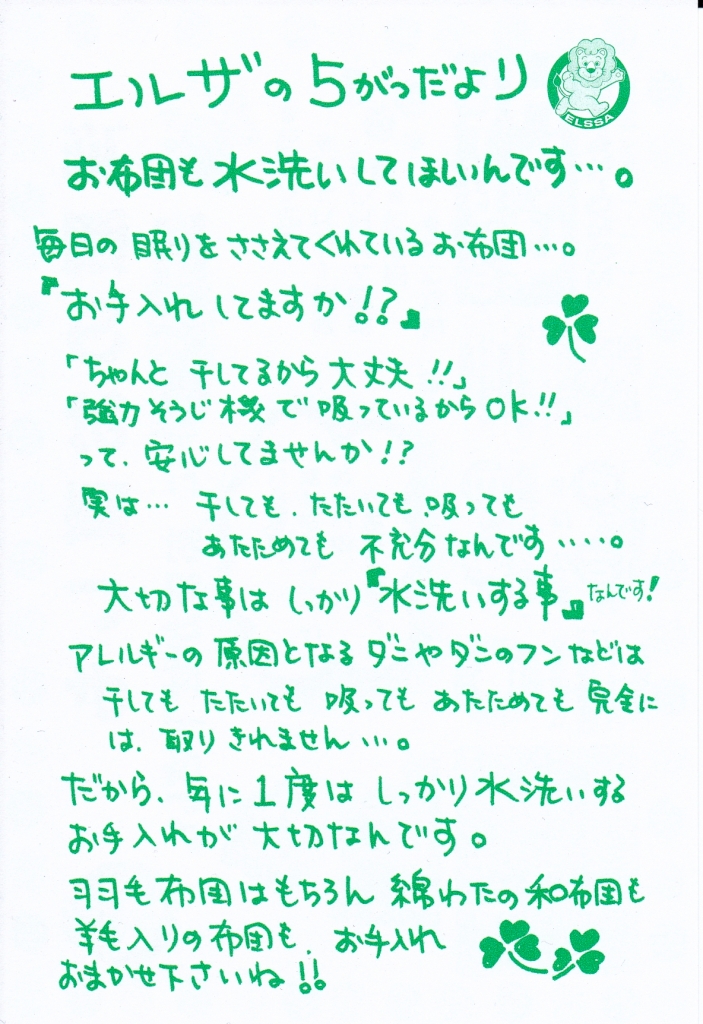 エルザの5がつだより
ELSSA
お布団も水洗いしてほしいんです…。
毎日の眠りをささえてくれているお布団…。
『お手入れしてますか!?』
「ちゃんと干してるから大丈夫!!」
「強力そうじ機で吸っているからOK!!」
って、安心してませんか!?
実は… 干しても、たたいても、吸っても
あたためても 不充分なんです‥‥。
大切な事は しっかり『水洗いする事』なんです!
アレルギーの原因となるダニやダニのフンなどは
干しても たたいても 吸っても あたためても 完全に
は、取りきれません…。
だから、年に1度は しっかり水洗いする
お手入れが 大切なんです。
羽毛布団はもちろん 綿わたの和布団も
羊毛入りの布団も、お手入れ
おまかせ下さいね!!